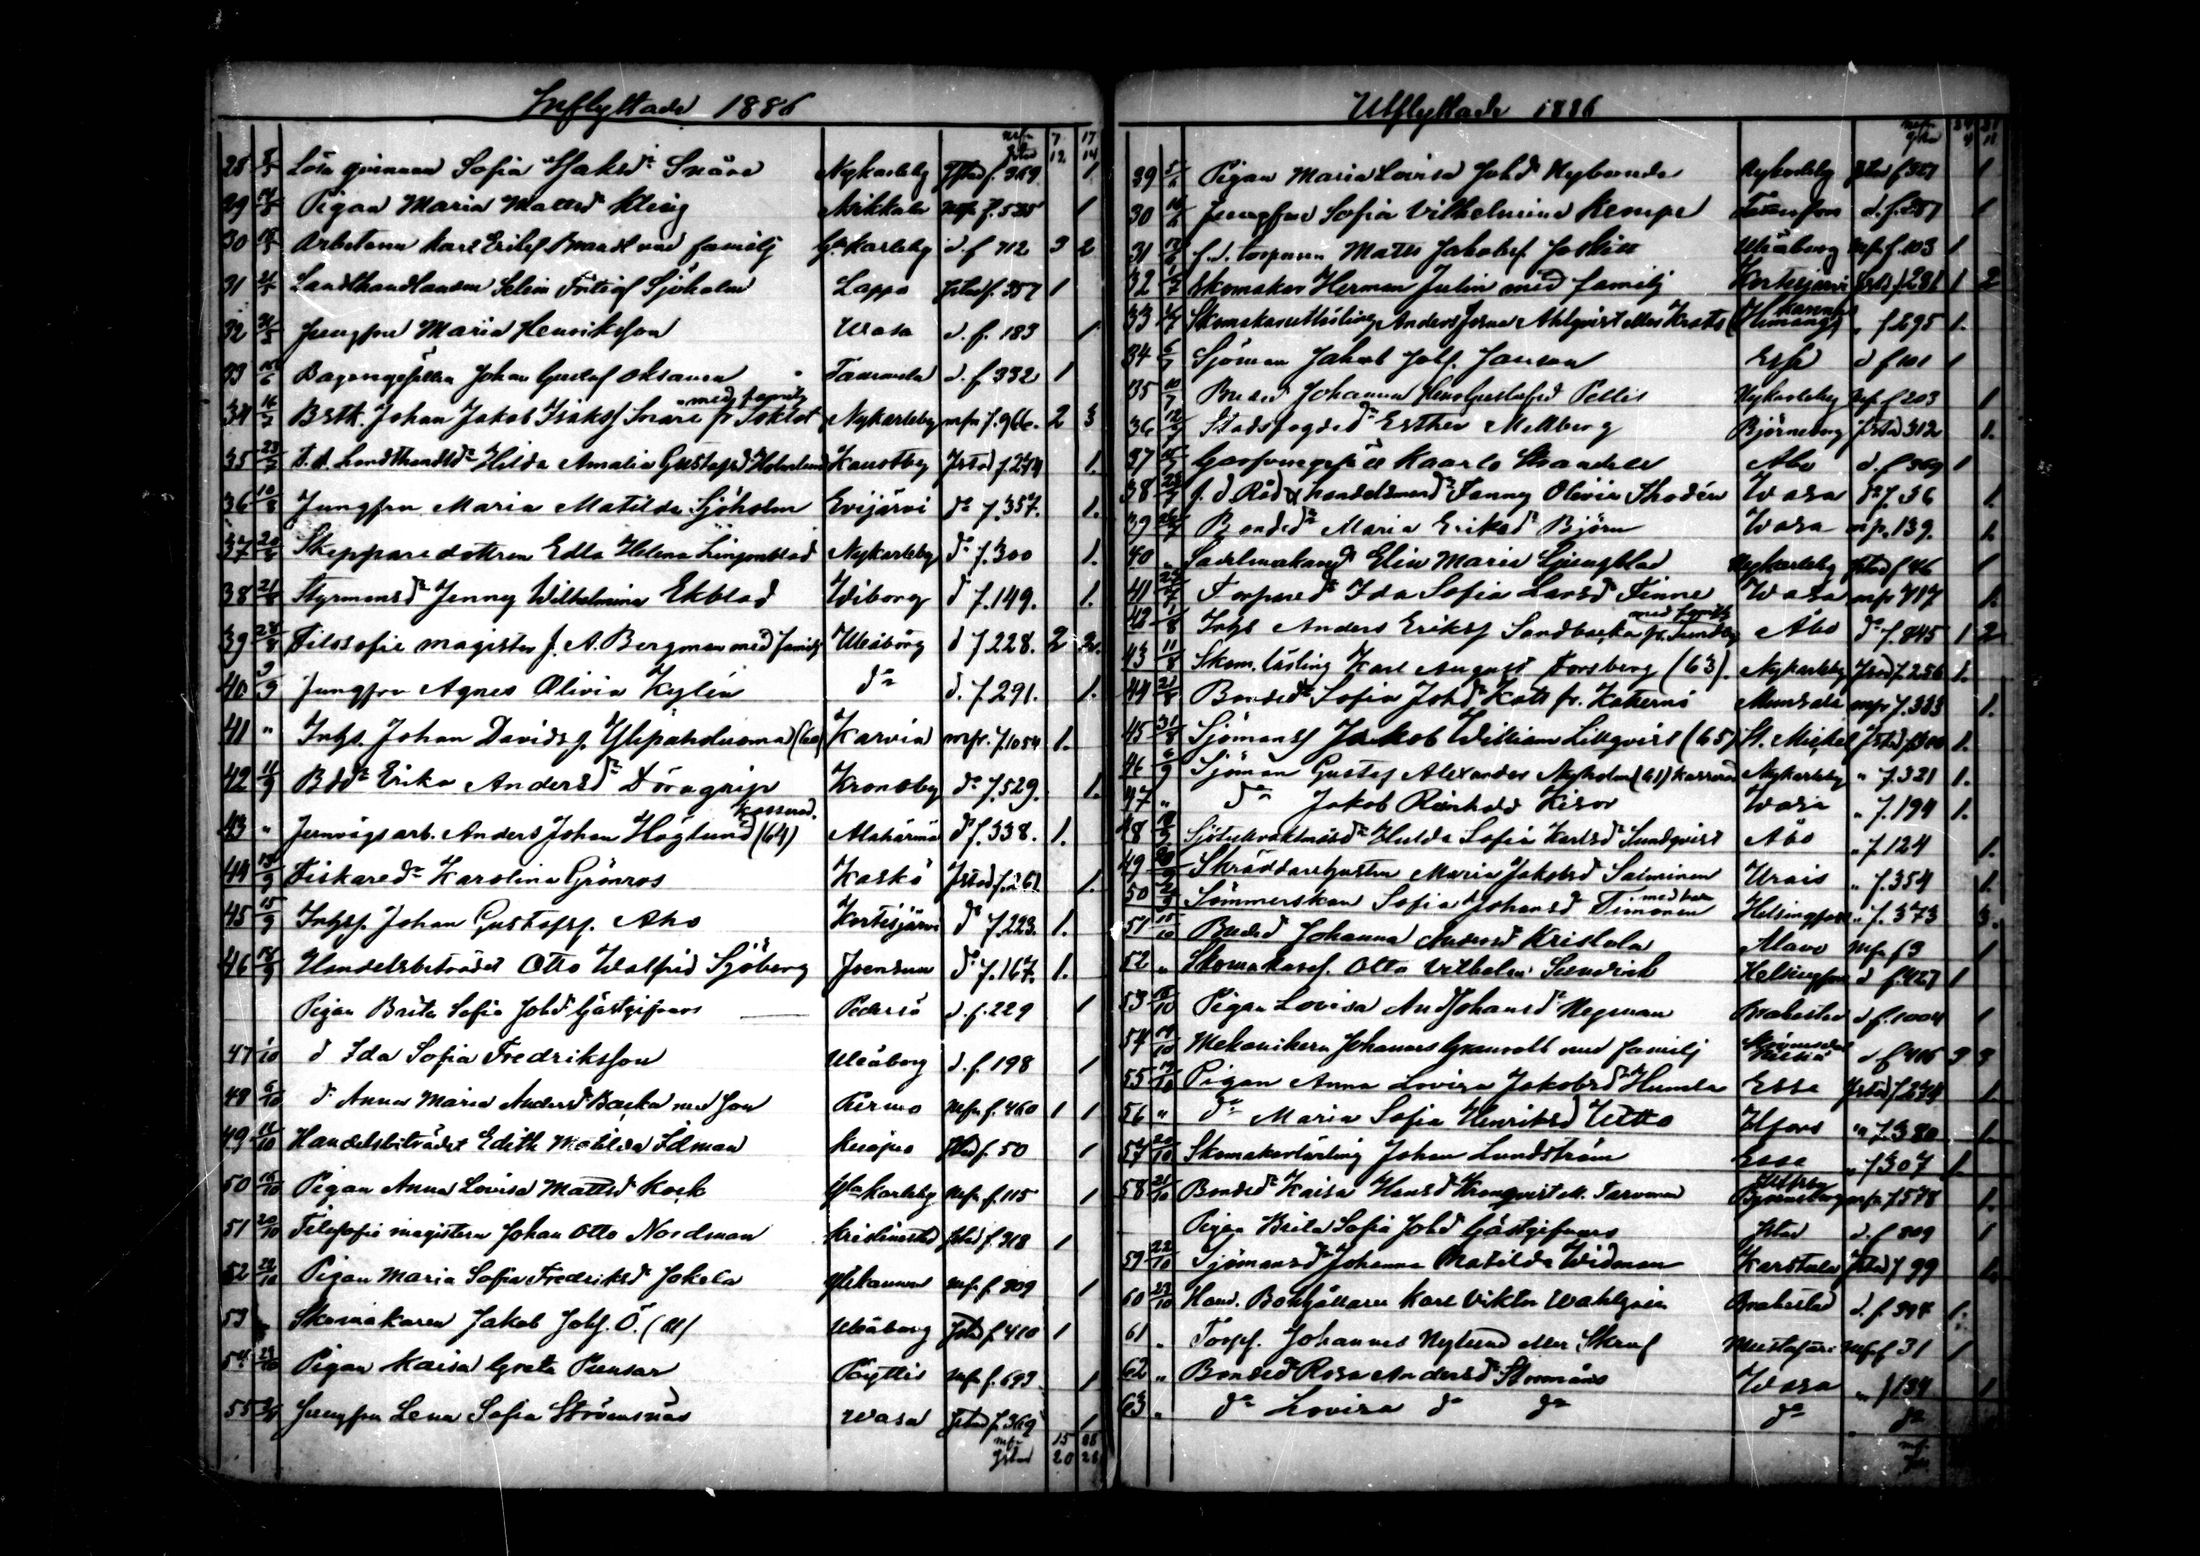 Inflyttade 1886
mfr 7 17
Jstad 12 14
28 5/5 Lösa qvinnan Sofia Isaksdr Snåre Nykarleby Jstad f. 369 1
29 Pigan Maria Mattsdr Kling mfr f. 535 1
30 Arbetaren Karl Eriksf Brandt med familj Gla Karleby d. f 712 3 2
31 Landthandlanden Selim Fritiof Sjöholm Lappo Jstad f. 357 1
32 31/5 Jungfru Maria Henriksson Wasa d. f. 183 1
33 Bagaregesällen Johan Gustaf Oksanen d. f 332 1
34 16/7 Bstk. Johan Jakob Isaksf Snåre fr Soklot med familj Nykarleby mfr f. 966. 2 3
35 23/7 F. d. Landthandldr Hilda Amalia Gustafsd Holmlund Kaustby Jstad f. 274 1.
36 10/8 Jungfru Maria Matilda Sjöholm Evijärvi do f. 357. 1.
37 20/8 Skepparedottren Edla Helena Ljungblad Nykarleby do f. 300 1.
38 21/8 Styrmansdr Jenny Wilhelmina Ekblad Wiborg d f. 149. 1.
39 28/8 Filosofie magister J. A. Bergman med familj Uleåborg d f. 228. 2 2.
40 9/9 Jungfru Agnes Olivia Kylén do d. f. 291. 1.
41 " Inhs. Johan Davidsf. Ylipahduoma (60) Karvia mfr. f. 1054 1.
42 11/9 Bdr Erika Andersdr Döragrip Kronoby do f. 529. 1.
43 " Jernvägsarb. Anders Johan Höglund (64) kasserad. Alahärmä do f. 338. 1.
44 13/9 Fiskaredr Karolina Grönros Kaskö Jstad f. 261 1.
45 15/9 Inhsf. Johan Gustafsf. Aho Kortesjärvi do f. 223. 1.
46 18/9 Handelsbiträdet Otto Walfrid Sjöberg Joensuu do f. 167. 1.
Pigan Brita Sofia Johd Gästgifvars Pedersö d. f. 229 1
47 1/10 d Ida Sofia Fredriksson Uleåborg d. f. 198 1
48 6/10 do Anna Maria Andersd Backa med son Purmo mfr f. 460 1 1
49 11/10 Handelsbiträdet Edith Matilda Idman Kuopio Jstad f. 50 1
50 16/10 Pigan Anna Lovisa Mattsd Kock Gla Karleby mfr f. 115 1
51 20/10 Filosofie magistern Johan Otto Nordman Kristinestad Jstad f. 318 1
52 22/10 Pigan Maria Sofia Fredriksd Jokela Ylikannus mfr f 809 1
53 " Skomakaren Jakob Johf. Ö. (61) Uleåborg Jstad f. 410 1
54 29/10 Pigan Kaisa Greta Punsar Pöyttis mfr f. 693 1
55 Jungfru Lena Sofia Storensnäs Wasa Jstad f. 369 1
mfr 15
Jstad 20 28
Utflyttade 1886
29 Pigan Maria Lovisa Johd Nybonde Nykarleby Jstad f 367 1
30 Jungfru Sofia Vilhelmina Kempe Tammerfors d. f. 287 1
31 f. d. torparen Matts Jakobsf. Uleåborg mfr f. 103 1.
32 Skomakar Herman Julin med familj Kortesjärvi Jstad f 281 1 2
33 Skomakarelärling Anders Josua Ahlqvist eller Krats Himango kasserad " f. 295 1.
34 6/7 Sjöman Jakob Johf. Janson Esse d f 101 1
35 10/7 Bndsd Johanna Hens Gustafsd Pellis Nykarleby mfr f 203 1
36 12/7 Stadsfogdedr Esther Mellberg Björneborg Jstad 312 1.
37 Garfvaregesäll Kaarlo Åbo d. f 369 1
38 23/7 f. d Råd & handelsmansdr Fanny Olivia Thodén Wasa do f. 36 1.
39 Bondedr Maria Eriksdr Björn Wasa mfr. 139. 1.
40 " Sadelmakaredr Elin Maria Ljungblad Nykarleby Jstad f 46 1
41 Torparedr Ida Sofia Larsd Finne Wasa mfr 717 1.
42 1/8 Inhs Anders Eriksf Sandbacka fr. Sundby med familj Åbo do f. 845 1 2
43 11/8 Skom. lärling Karl August Forsberg (63). Nykarleby Jstad f. 256 1.
44 21/8 Bondedr Sofia Johdr Katt fr. Katternö Munsala mfr f. 333 1.
45 31/8 Sjömansf Jakob William Lillqvist (65) St. Mickel Jstad f. 300 1.
46 6/9 Sjöman Gustaf Alexander Nyholm (61) kasserad Nykarleby " f. 321 1.
47 " do Jakob Reinhold Kisor Wasa " f. 194 1.
48 Sjötullvaktmästdr Hulda Sofia Karlsd Sundqvist Åbo " f. 124 1.
49 Skräddarehustru Maria Jakobsd Salminen Urais " f. 354 1.
50 Sömmerskan Sofia Johansd Timonen med barn Helsingfors " f. 373 3.
51 15/10 Bndsd Johanna Andersd Kristola Alavo mfr f 3 1
52 " Skomakaref. Otto Vilhelm Sundvik Helsingfors d f. 427 1
53 Pigan Lovisa And Johansd Hegman Brahestad d f. 1004 1
54 Mekanikern Johannes Granroth med familj d f 416 3 3
55 19/10 Pigan Anna Lovisa Jakobsd Humla Esse Jstad f. 274 1
56 " do Maria Sofia Henriksd Utto Hfors " f. 380 1.
57 20/10 Skomakarelärling Johan Lundström Esse " f 307 1
58 21/10 Bondedr Kaisa Hansd Kronqvist ell. Tarvonen Björneborg mfr f. 578 1.
Pigan Brita Sofia Johd Gästgifvars Jstad d. f 809 1
59 22/10 Sjömansdr Johanna Matilda Widman Karstula Jstad f 99 1.
60 23/10 Hand. Bokhållaren Karl Viktor Wahlgren Brahestad d. f 394 1.
61 " Torpf. Johannes Nylund eller Skruf Mustasaari mfr f 31 1
62 " Bondedr Rosa Andersdr Stormåns Wasa " f 134 1
63 " do Lovisa do do do do
mfr.
Jstad